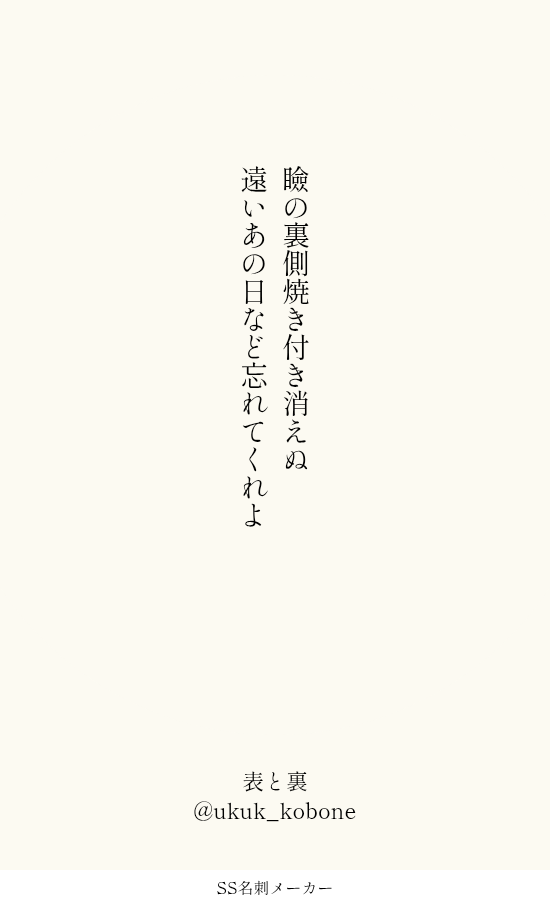 瞼の裏側焼き付き消えぬ
遠いあの日など忘れてくれよ
表と裏
@ukuk_kobone
SS名刺メーカー